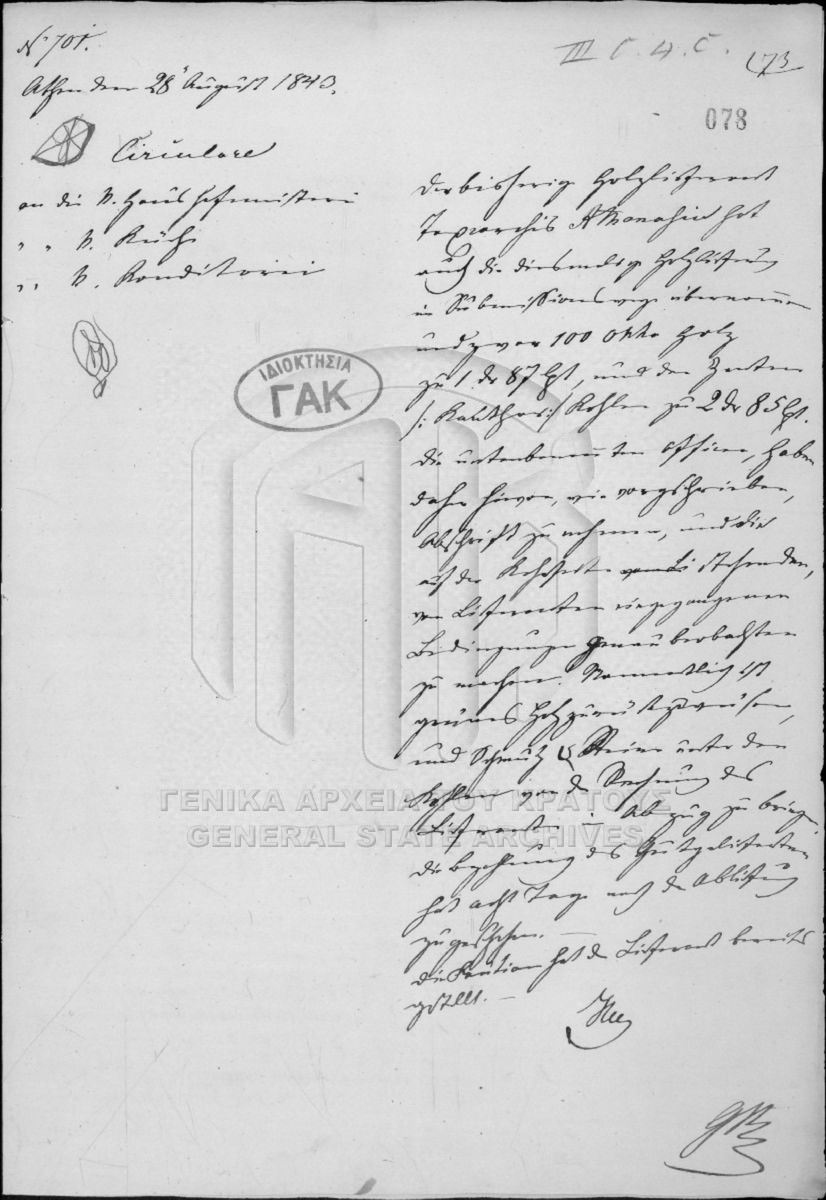 No 701.
Athen den 28 August 1843.
III C. 4. C.
173
078
Circulare
an die K. Haushofmeisterei
" " K. Küche
" " K. Konditorei
Der bisherige Holzlieferant
Taxiarchis Athanasiu hat
auch die diesmalige Holzlieferung
im Submissionswege übernommen
und zwar 100 Okka Holz
zu 1 dr 87 Lpt, und den Zenten
Kohlen zu 2 dr 85 Lpt.
Die untenbenannten Officen, haben
daher hievon, wie vorgeschrieben,
Abschrift zu nehmen, und die
auf der Rückseite stehenden,
vom Lieferanten eingegangenen
Bedingungen genau beobachten
zu machen. Namentlich ist
grünes Holz zurückzuweisen,
und Schmutz & Steine unter den
Kohlen von der Rechnung des
Lieferanten in Abzug zu bringen.
Die Bezahlung des Gutgelieferten
hat acht Tage nach der Ablieferung
zu geschehen. —
Die Kaution hat der Lieferant bereits
gestellt. —
ΙΔΙΟΚΤΗΣΙΑ
ΓΑΚ
ΓΕΝΙΚΑ ΑΡΧΕΙΑ ΤΟΥ ΚΡΑΤΟΥΣ
GENERAL STATE ARCHIVES